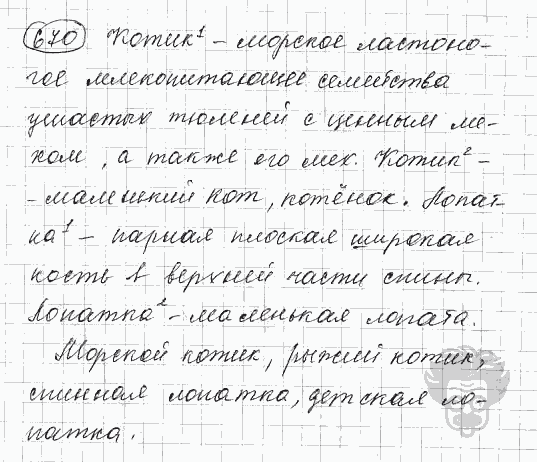 670 Котик¹ – морское ластоно-
гое млекопитающее семейства
ушастых тюленей с ценным ме-
хом, а также его мех. Котик² –
- маленький кот, котёнок. Лопат-
ка¹ – парная плоская широкая
кость в верхней части спины.
Лопатка² – маленькая лопата.
Морской котик, рыжий котик,
спинная лопатка, детская ло-
патка.